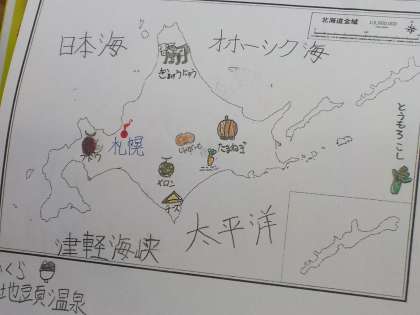 北海道全域
日本海
オホーツク海
ぎゅうにゅう
とうもろこし
札幌
じゃがいも
たまねぎ
メロン
チーズ
太平洋
津軽海峡
いくら
地球岬温泉